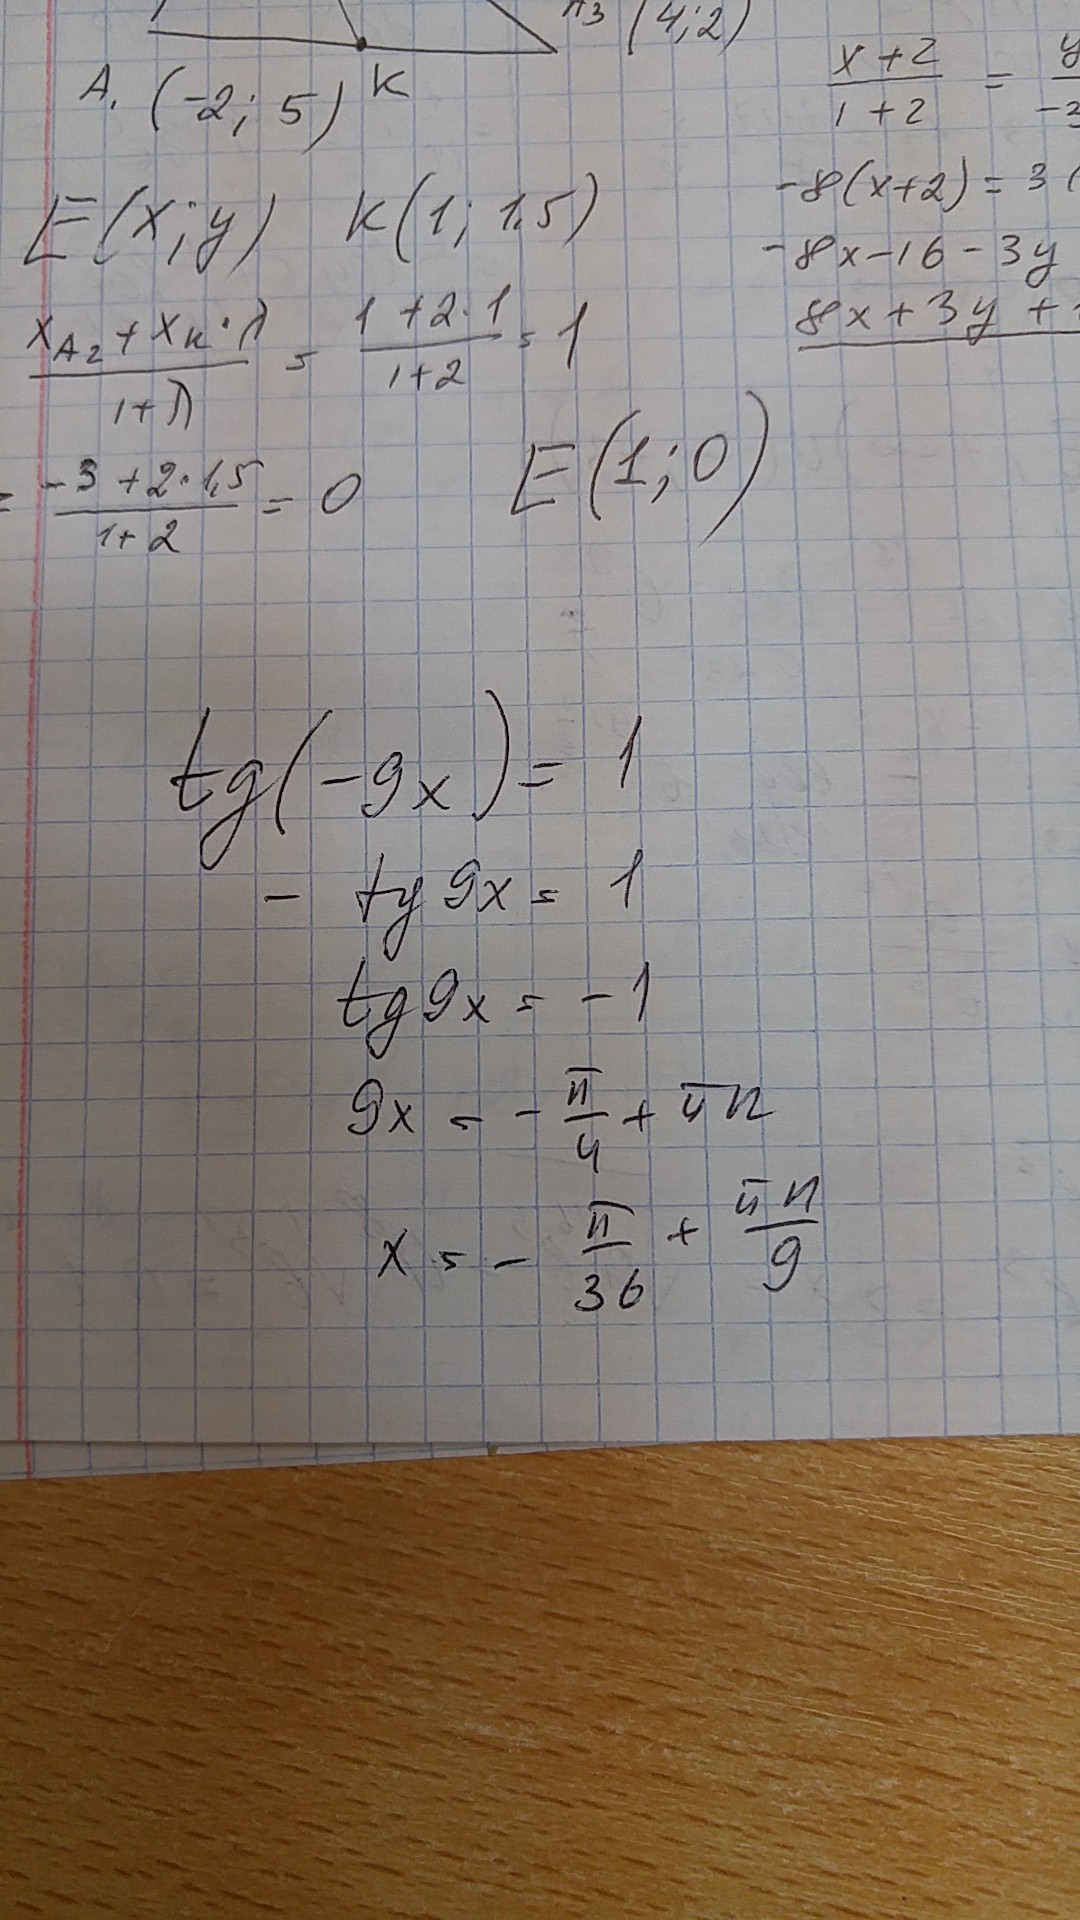 A₃ (4;2)
A. (-2; 5) K
E(x;y) K(1; 1,5)
(x_A₂ + x_K · λ)/(1+λ) = (1 + 2·1)/(1+2) = 1
= (-3 + 2·1,5)/(1+2) = 0 E(1;0)
(x+2)/(1+2) = y/-3
-8(x+2) = 3(
-8x-16-3y
8x+3y+
tg(-9x) = 1
- tg 9x = 1
tg 9x = -1
9x = - π/4 + πn
x = - π/36 + πn/9